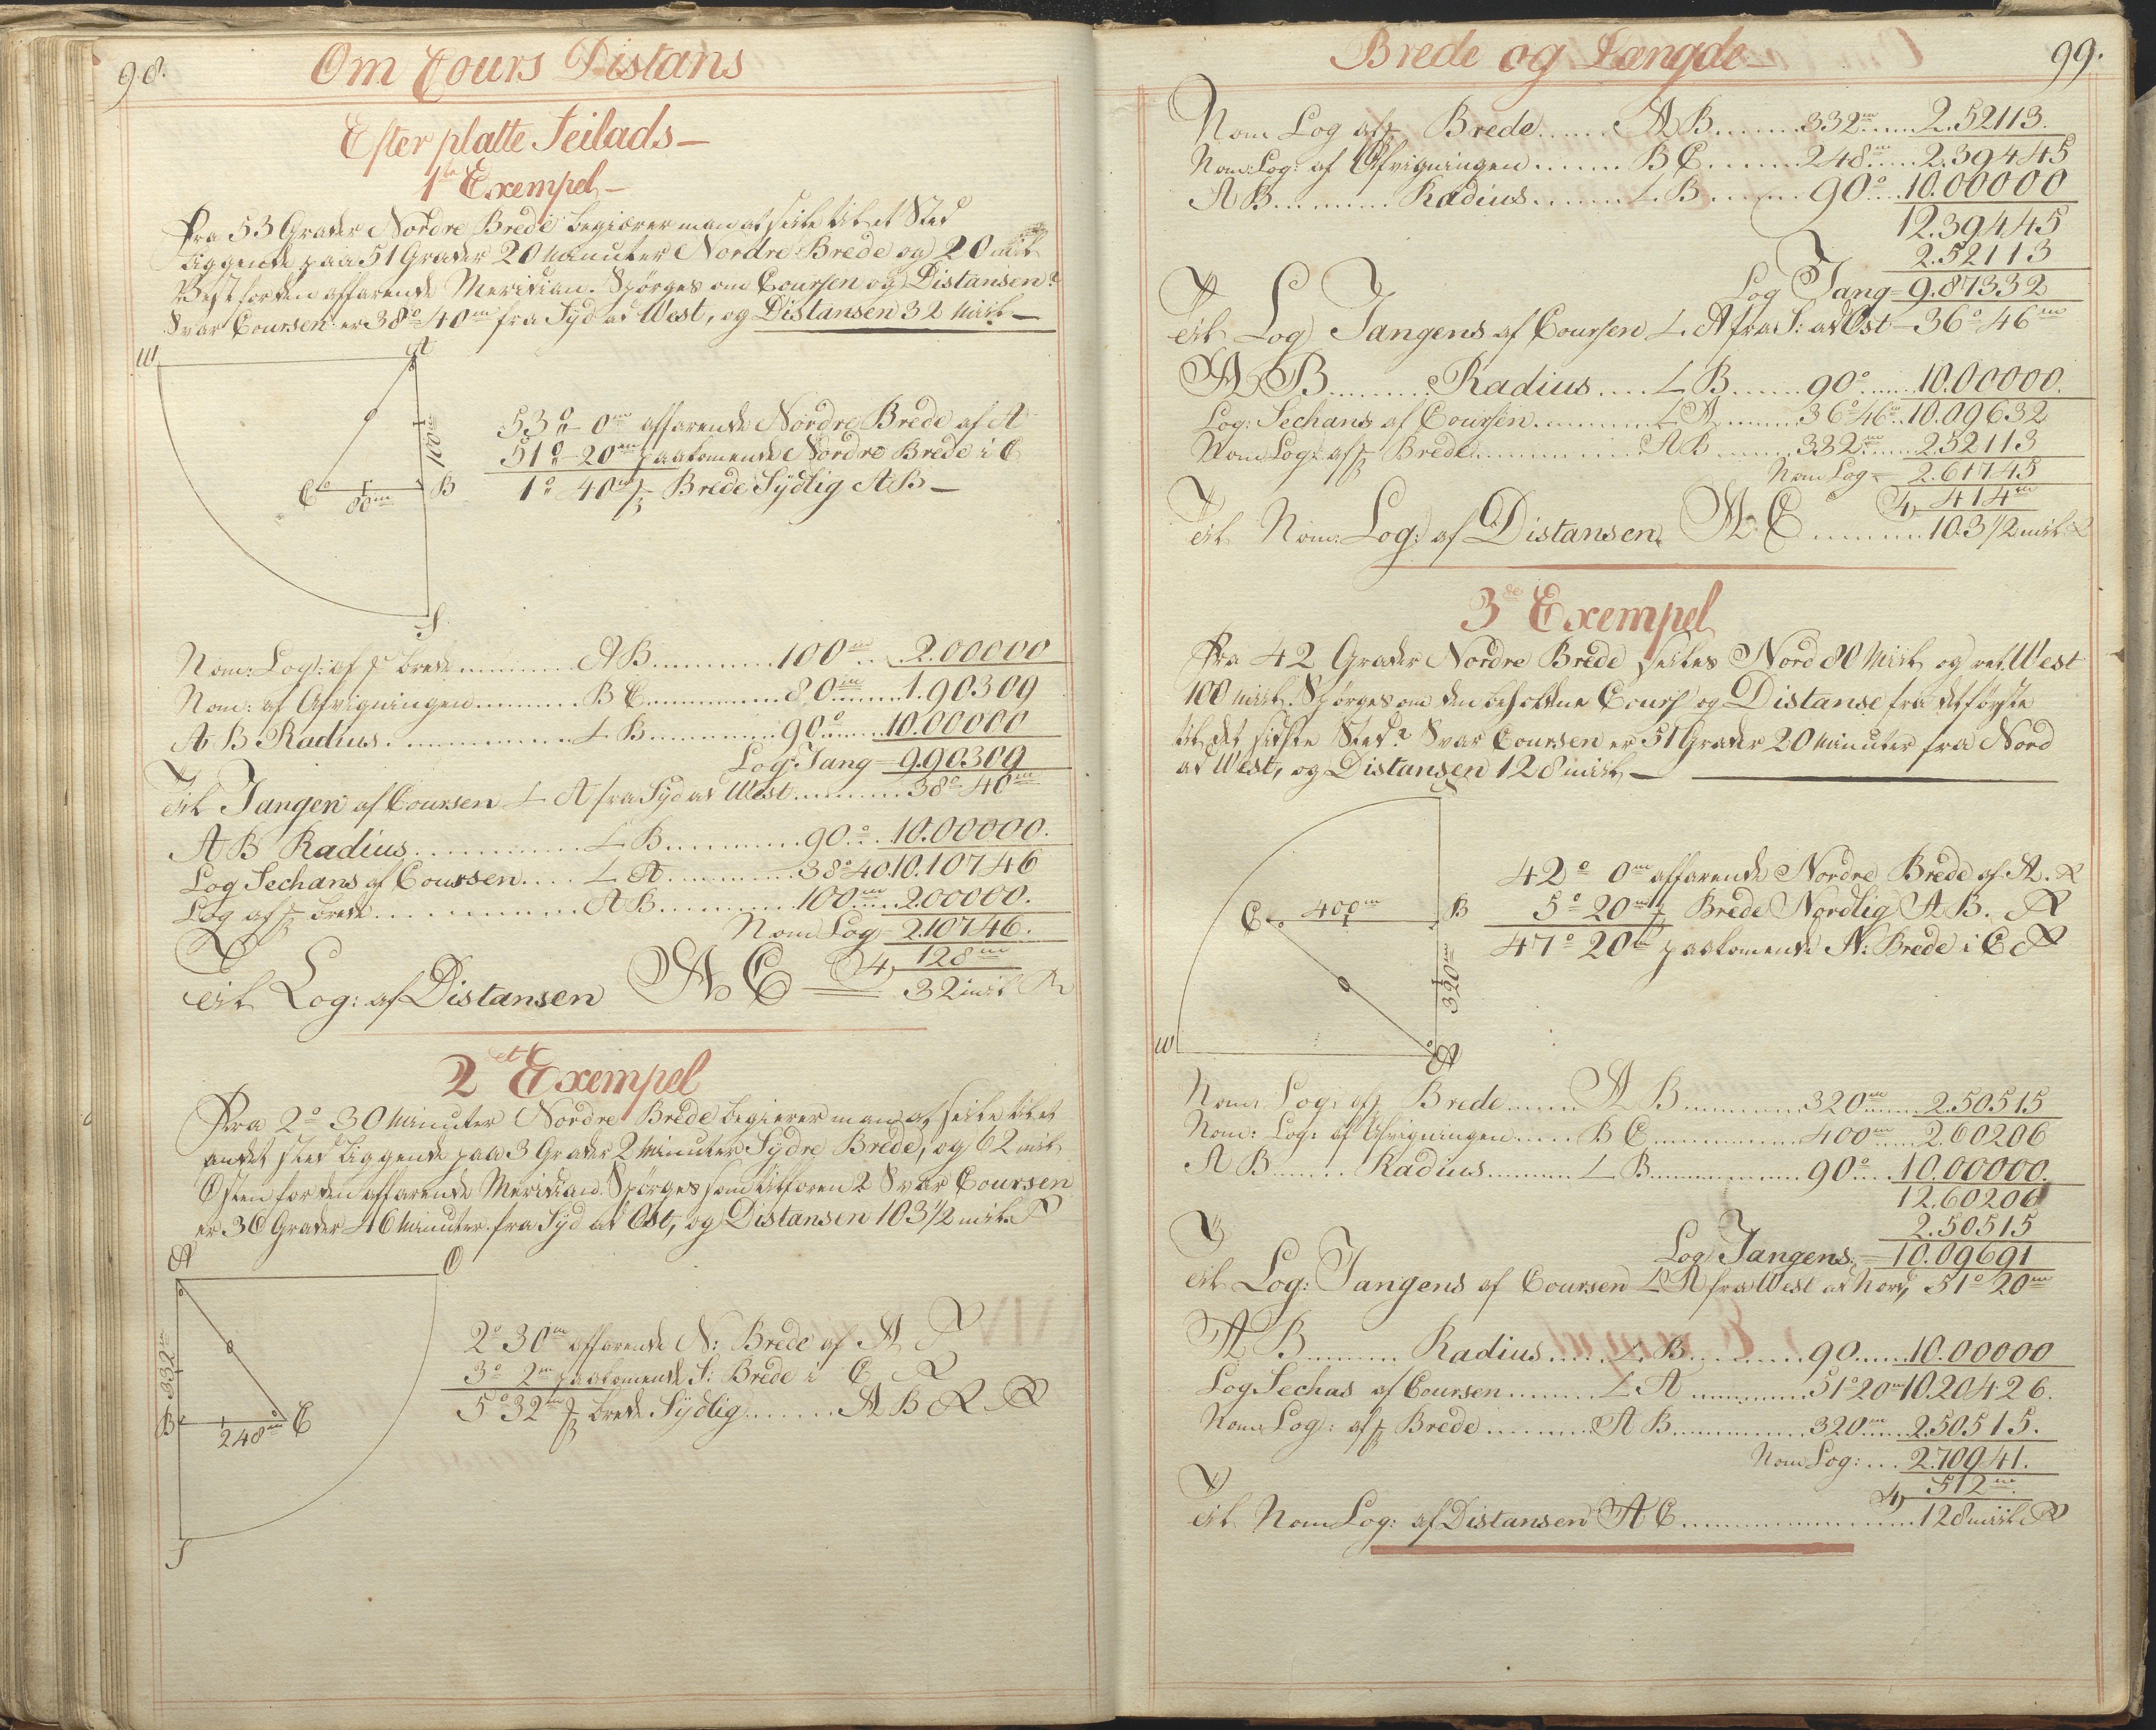 98.
Om Cours Distans
Efter platte Seilads
1te Exempel
Fra 53 Grader Nordre Brede begiærer man at seile til et Sted
liggende paa 51 Grader 20 Minuter Nordre Brede og 20 Miil
Vest for den affarende Meridian. Spörges om Coursen og Distansen?
Svar Coursen er 38° 40m fra Syd ad West, og Distansen 32 Miil
W
A
100m
C
80m
B
S
53° 0m affarende Nordre Brede af A
51° 20m paakomende Nordre Brede i C
1° 40m Brede Sydlig AB
Nom: Log: af Brede AB 100m 2.00000
Nom: af Afvigningen BC 80m 1.90309
AB Radius L B 90° 10.00000
Log Tang = 9.90309
Til Tangen af Coursen L A fra Syd ad West 38° 40m
AB Radius L B 90° 10.00000.
Log Sechans af Coursen L A 38° 40 10.10746
Log af Brede AB 100m 2.00000.
Nom Log = 2.10746.
4 128m
Til Log: af Distansen AC = 32 miil
2et Exempel
Fra 2° 30 Minuter Nordre Brede begierer man at seile til et
andet sted liggende paa 3 Grader 2 Minuter Sydre Brede, og 62 miil
Osten for den affarende Meridian. Spörges som tilforen? Svar Coursen
er 36 Grader 46 Minuter fra Syd ad Ost, og Distansen 103 1/2 mile
A
O
332m
B
248m
C
S
2° 30m affarende N: Brede af A
3° 2m paakomende S: Brede i C
5° 32m Brede Sydlig AB
Brede og Længde
99.
Nom Log af Brede AB 332m 2.52113.
Nom: Log: af Afvigningen BC 248m 2.39445
AB Radius L B 90° 10.00000
12.39445
2.52113
Log Tang = 9.87332
Til Log Tangens af Coursen L A fra S: ad Ost 36° 46m
AB Radius L B 90° 10.00000.
Log: Sechans af Coursen L A 36° 46m 10.09632
Nom Log: af Brede AB 332m 2.52113
Nom Log = 2.61745
4 414m
Til Nom: Log: af Distansen AC 103 1/2 miil
3de Exempel
Fra 42 Grader Nordre Brede seiles Nord 80 Miil og ret West
100 Miil. Spörges om den beholdne Cours og Distanse fra det förste
til det sidste Sted? Svar Coursen er 51 Grader 20 Minuter fra Nord
ad West, og Distansen 128 miil
C
400m
B
320m
W
A
42° 0m affarende Nordre Brede af A.
5° 20m Brede Nordlig AB.
47° 20m paakomende N: Brede i C
Nom: Log: af Brede AB 320m 2.50515
Nom: Log: af Afvigningen BC 400m 2.60206
AB Radius L B 90° 10.00000.
12.60206
2.50515
Log Tangens = 10.09691
Til Log: Tangens af Coursen L A fra West ad Nord, 51° 20m
AB Radius L B 90 10.00000
Log Sechas af Coursen L A 51° 20m 10.20426.
Nom: Log: af Brede AB 320m 2.50515.
Nom Log: 2.70941.
4 512m
Til Nom Log: af Distansen AC 128 miil